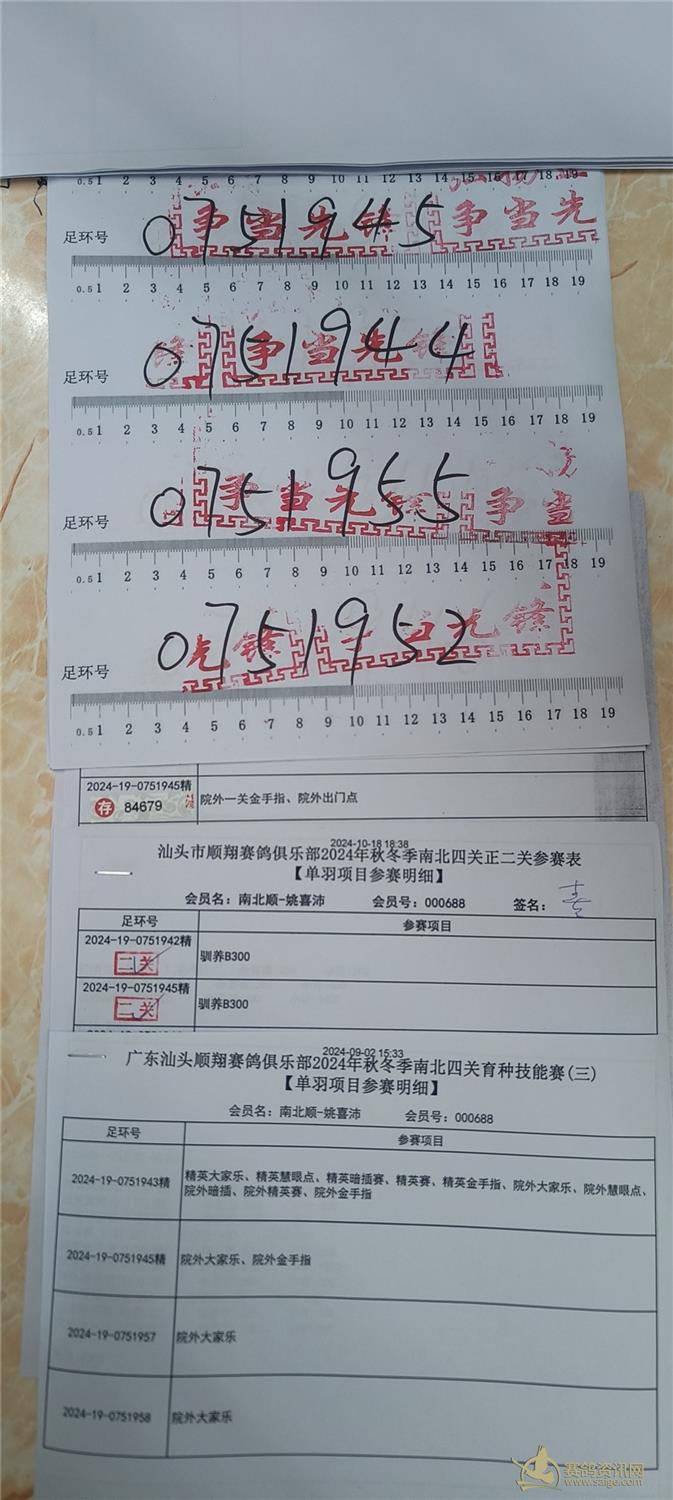 0.5 1 2 3 4 5 6 7 8 9 10 11 12 13 14 15 16 17 18 19
争当先锋 争当先
足环号 0751945
0.5 1 2 3 4 5 6 7 8 9 10 11 12 13 14 15 16 17 18 19
锋 争当先锋
足环号 0751944
0.5 1 2 3 4 5 6 7 8 9 10 11 12 13 14 15 16 17 18 19
争当先锋 争当
足环号 0751955
0.5 1 2 3 4 5 6 7 8 9 10 11 12 13 14 15 16 17 18 19
先锋 争当先锋
足环号 0751952
0.5 1 2 3 4 5 6 7 8 9 10 11 12 13 14 15 16 17 18 19
2024-19-0751945精
存 84679 院外一关金手指、院外出门点
2024-10-18 18:38
汕头市顺翔赛鸽俱乐部2024年秋冬季南北四关正二关参赛表
【单羽项目参赛明细】
会员名：南北顺-姚喜沛 会员号：000688 签名：
足环号 参赛项目
2024-19-0751942精 驯养B300
二关
2024-19-0751945精 驯养B300
二关
2024-09-02 15:33
广东汕头顺翔赛鸽俱乐部2024年秋冬季南北四关育种技能赛(三)
【单羽项目参赛明细】
会员名：南北顺-姚喜沛 会员号：000688
足环号 参赛项目
2024-19-0751943精 精英大家乐、精英慧眼点、精英暗插赛、精英赛、精英金手指、院外大家乐、院外慧眼点、
院外暗插、院外精英赛、院外金手指
2024-19-0751945精 院外大家乐、院外金手指
2024-19-0751957 院外大家乐
2024-19-0751958 院外大家乐
赛鸽资讯网
www.saige.com